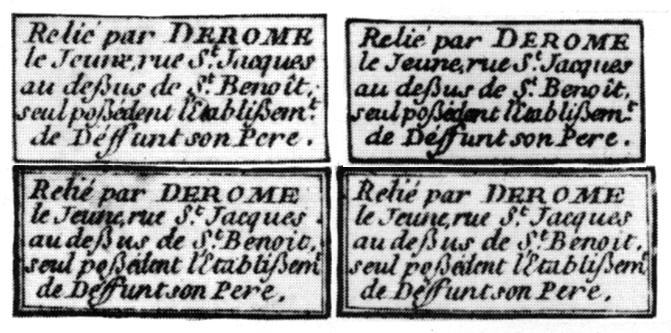 Relié par DEROME
le Jeune, rue S.t Jacques
au deßus de S.t Benoît,
seul poßédent l'Etablißem.t
de Déffunt son Pere.
Relié par DEROME
le Jeune, rue S.t Jacques
au deßus de S.t Benoît,
seul poßédent l'Etablißem.t
de Déffunt son Pere.
Relié par DEROME
le Jeune, rue S.t Jacques
au deßus de S.t Benoit,
seul poßédent l'Etablißem.t
de Déffunt son Pere.
Relié par DEROME
le Jeune, rue S.t Jacques
au deßus de S.t Benoit,
seul poßédent l'Etablißem.t
de Déffunt son Pere.